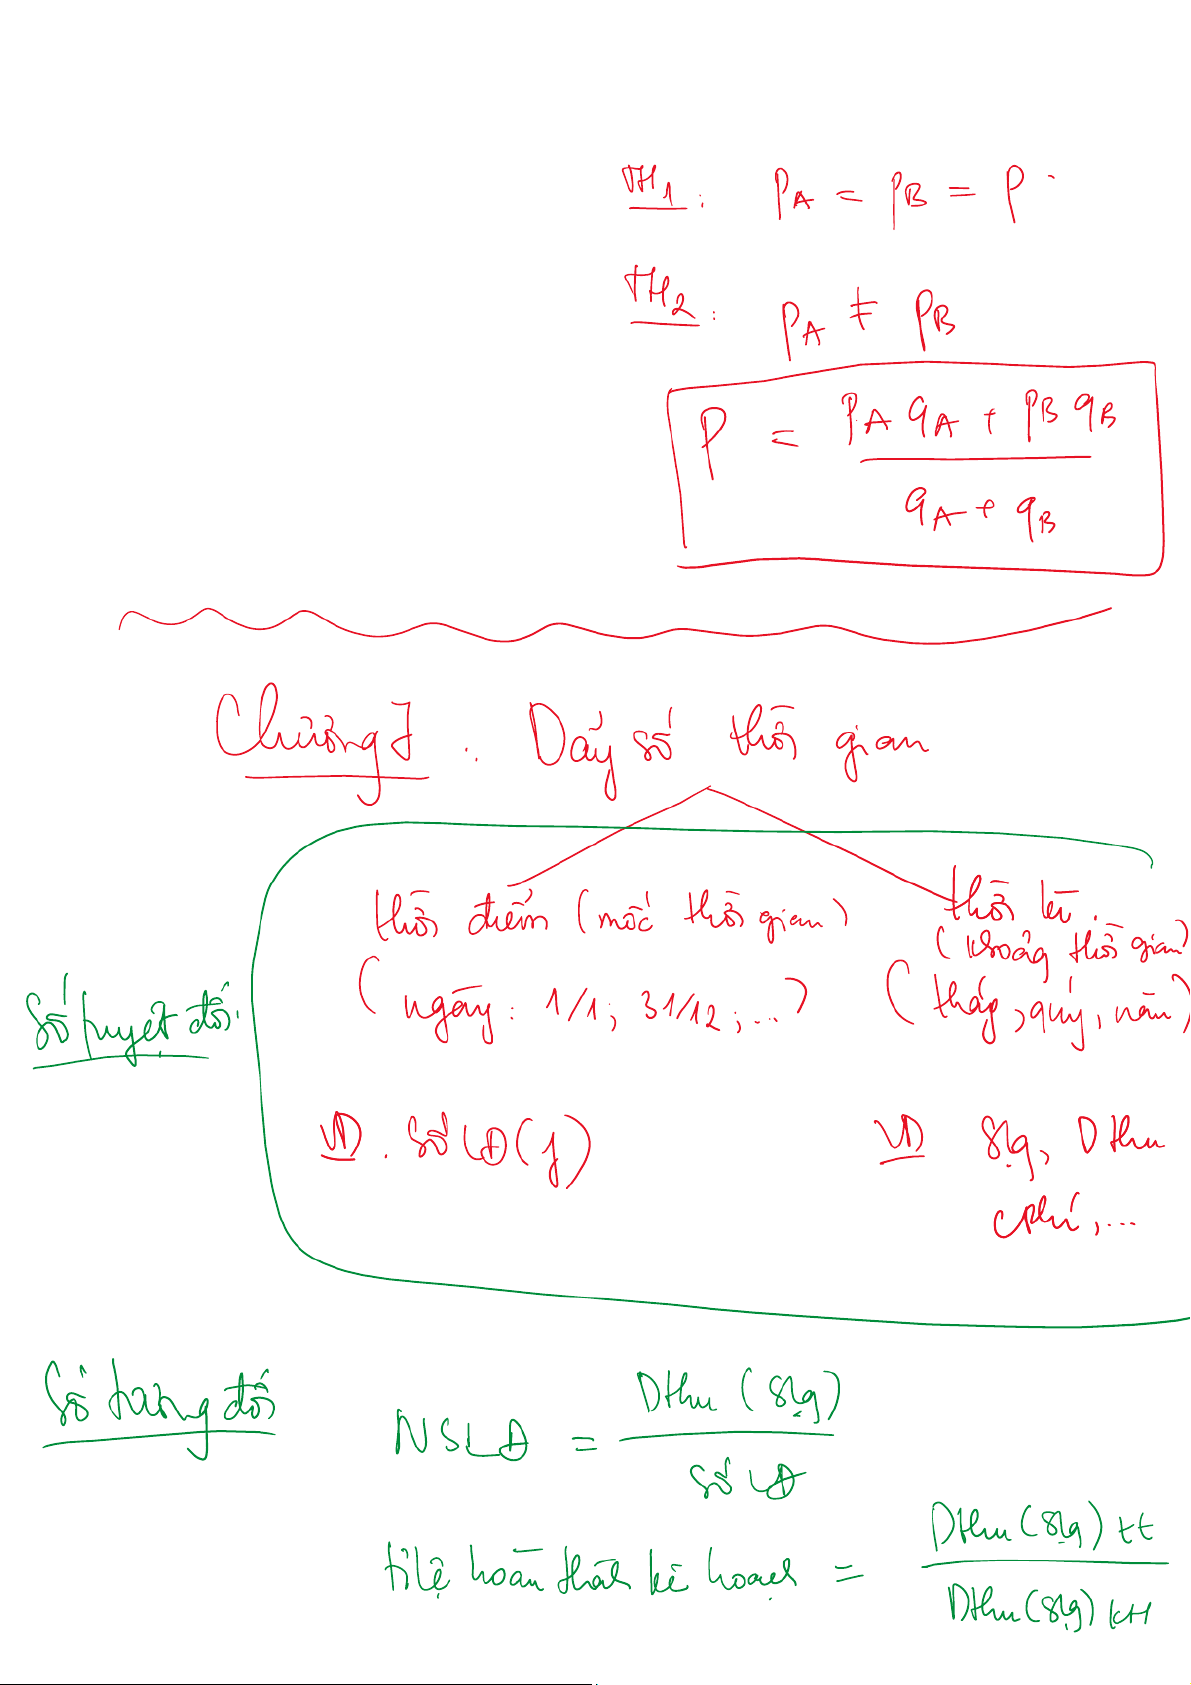 TH1: PA = PB = P
TH2: PA ≠ PB
P = (PA qA + PB qB) / (qA + qB)
Chương 7: Dãy số thời gian
thời điểm (mốc thời gian)
thời kì.
(khoảng thời gian)
(ngày: 1/1; 31/12; ...)
(thág, quý, năm)
Số tuyệt đối:
VD. Số LĐ (
)
VD Slg, Dthu
Cphí, ...
Số tương đối
NSLĐ = Dthu (Slg) / Số LĐ
tỉ lệ hoàn thành kế hoạch = Dthu (Slg) tt / Dthu (Slg) KH